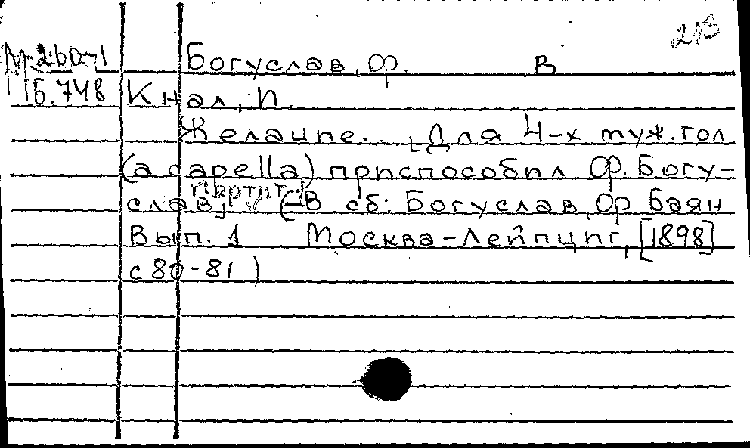 213
Богуслав, Ф. В
Б.748 Кнал, П.
Желание... Для 4-х муж. гол
(a capella) приспособил Ф. Богу-
слав. (В сб: Богуслав, Ф Баян
Вып. 1 Москва-Лейпциг, [1898]
с 80-81)